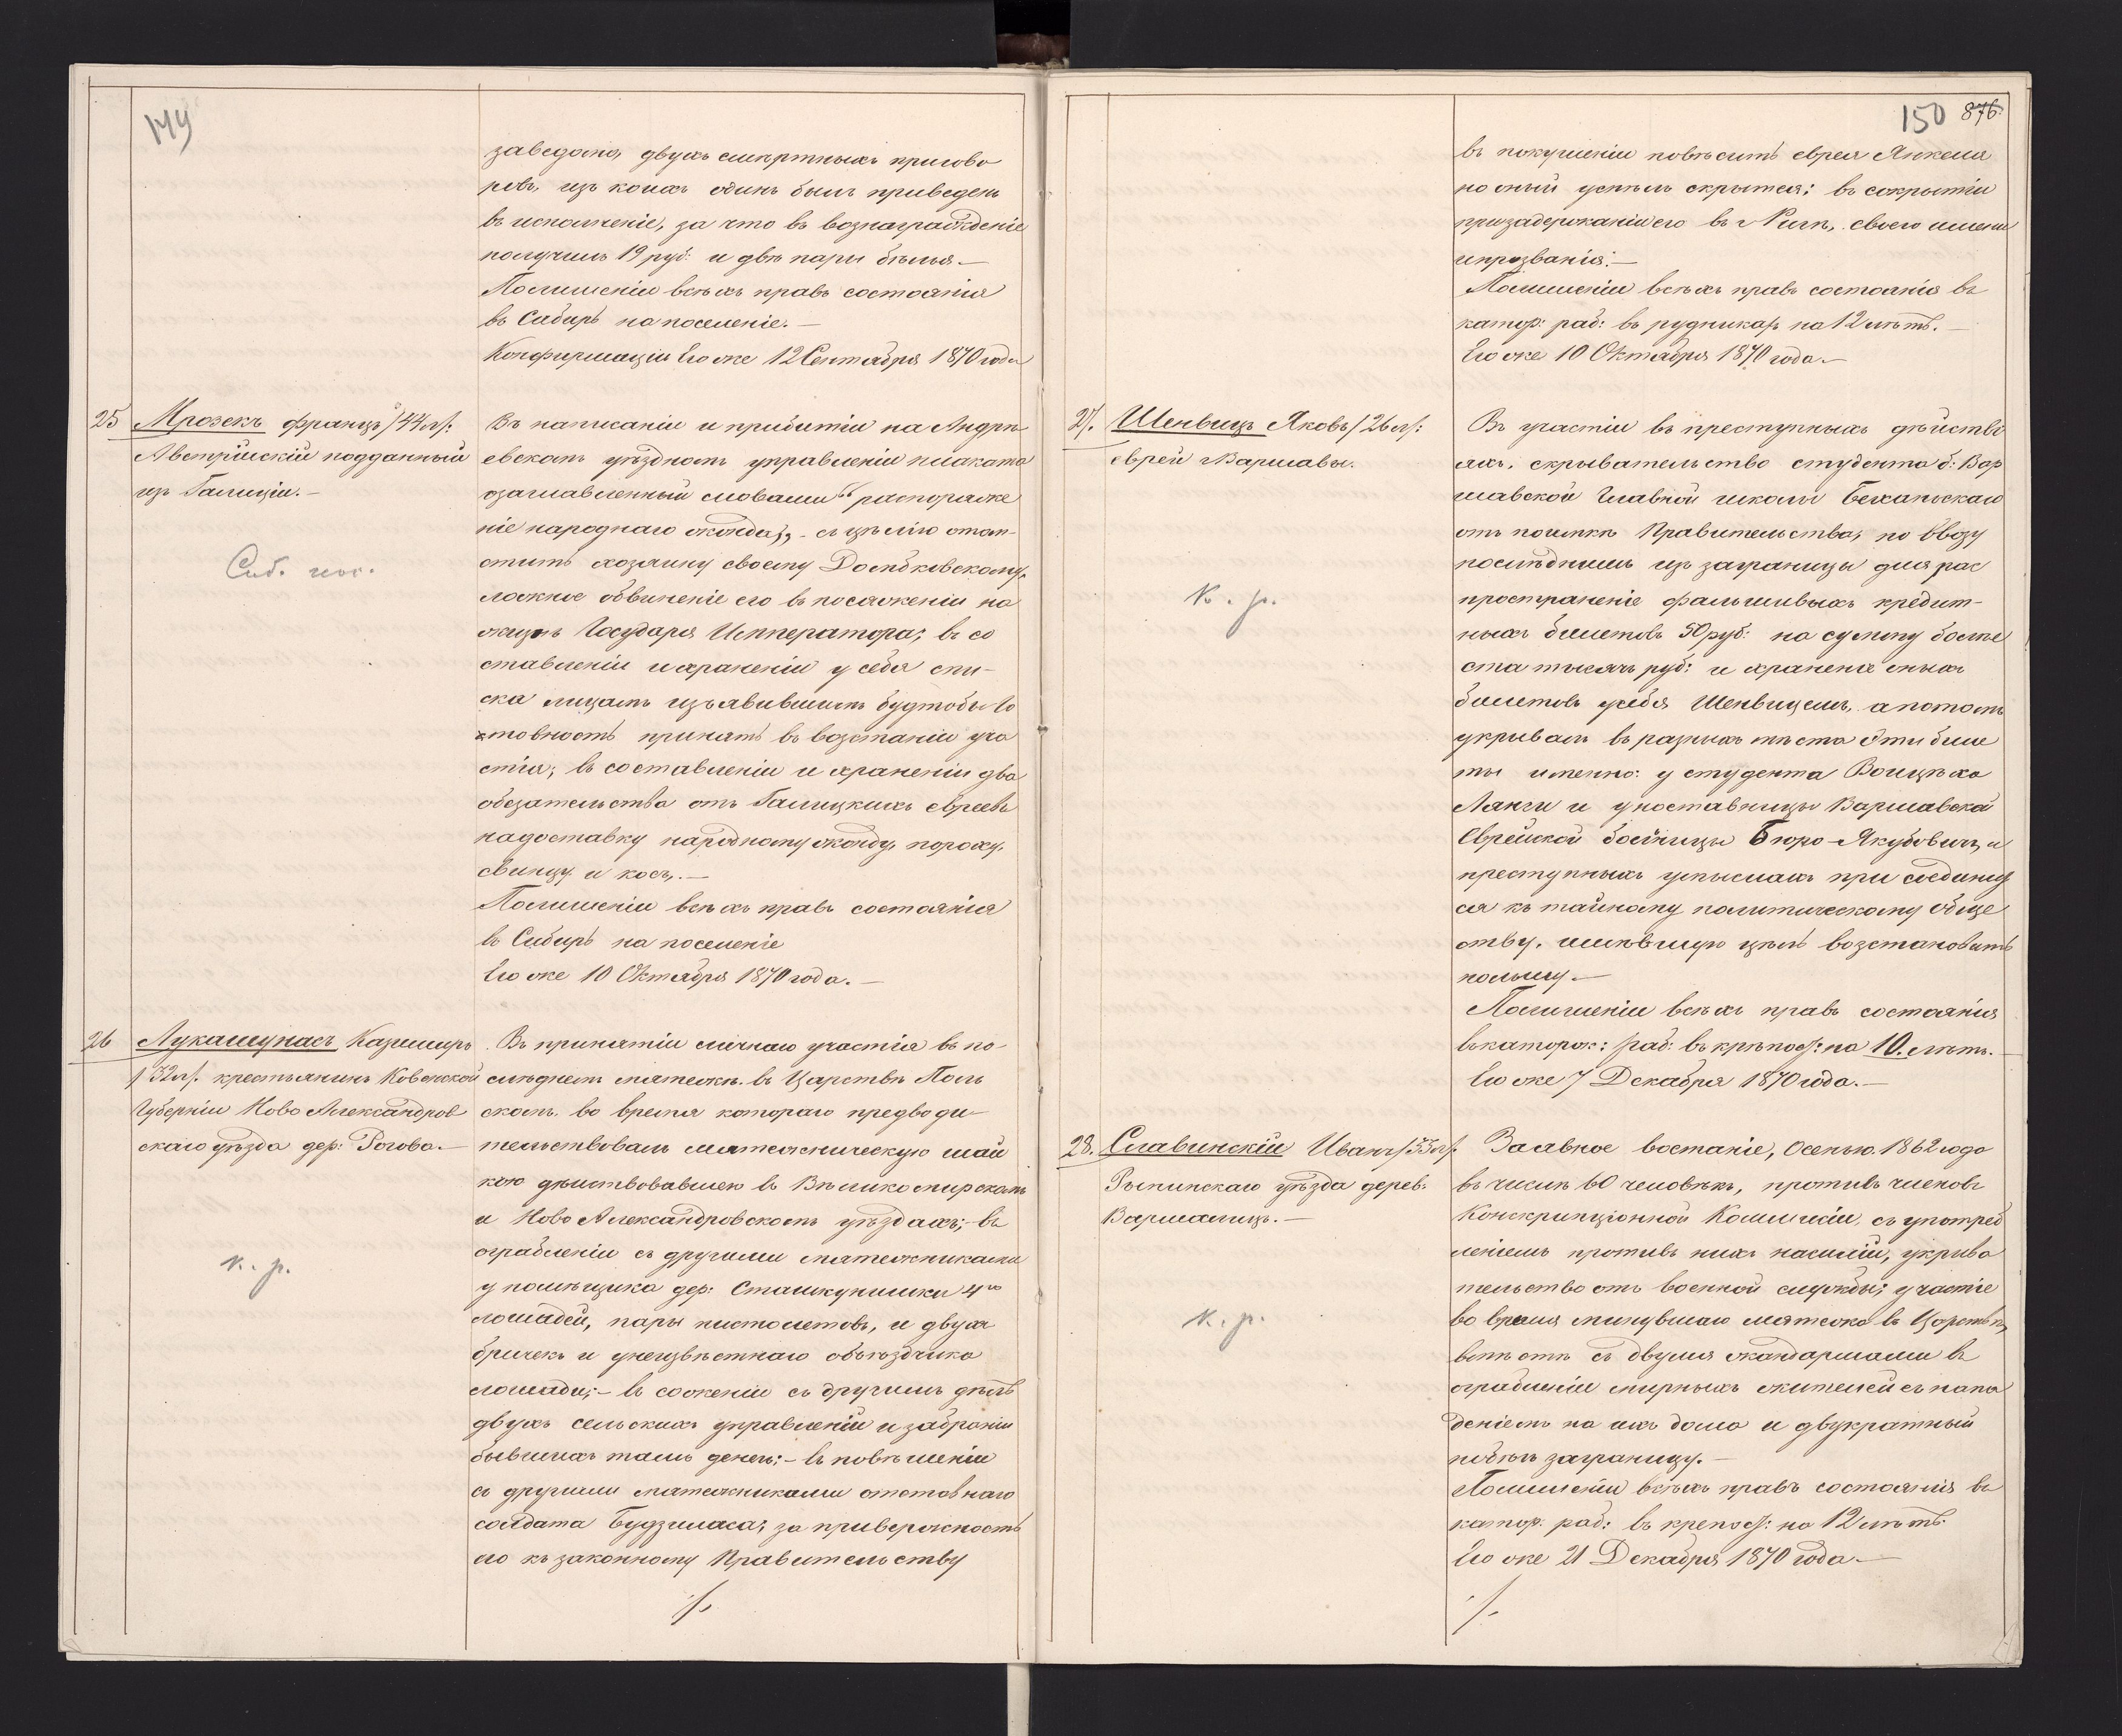 149
заведомо, двухъ смертныхъ пригово
ровъ, изъ коихъ одинъ былъ приведенъ
въ исполненіе, за что въ вознагражденіе
получилъ 19 руб: и двѣ пары бѣлья.—
Полишеніи всѣхъ правъ состоянія
въ Сибирь на поселеніе.—
Конфирмаціи Егоже 12 Сентября 1870 года
25 Мрозекъ Францъ /44 л/:
Австрійскій подданный
изъ Галиціи.—
Сиб. пос.
Въ написаніи и прибитіи на Андре
евскомъ уѣздномъ управленіи плаката
озаглавленный словами "распоряже
ніе народнаго жонда", - съ цѣлію отом-
стить хозяину своему Домбковскому,
ложное обвиненіе его въ посяженіи на
жизнь Государя Императора; въ со
ставленіи и храненіи у себя спи-
ска лицамъ изъявившимъ будтобы го
товность принять въ возстаніи уча
стія; въ составленіи и храненіи два
обязательства отъ Галицкихъ евреевъ
на доставку народному жонду, пороху,
свинцу и косъ.—
Полишеніи всѣхъ правъ состоянія
въ Сибирь на поселеніе
Егоже 10 Октября 1870 года.—
26 Лукашунасъ Казимиръ
/32 л/. крестьянинъ Ковенской
Губерніи Ново Александров
скаго уѣзда дер: Рогова.—
к. р.
Въ принятіи личнаго участія въ по-
слѣднемъ мятежѣ въ Царствѣ Поль
скомъ, во время котораго предводи-
тельствовалъ мятежническую шай
кою дѣйствовавшею въ Вѣлико мирскомъ
и Ново Александровскомъ уѣздахъ;- въ
ограбленіи съ другими мятежниками
у помѣщика дер: Сташкунишки 4хъ
лошадей, пары пистолетовъ, и двухъ
бричекъ и у неизвѣстнаго объѣздчика
лошади;- въ сожженіи съ другими дѣлъ
двухъ сельскихъ управленій и забраніи
бывшихъ тамъ денегъ;- въ повѣшеніи
съ другими мятежниками отставнаго
солдата Будзиласа, за приверженность
его къ законному Правительству
·/.
150 876.
въ покушеніи повѣсить еврея Янкеля
но оный успѣлъ скрыться; въ сокрытіи
при задержаніи его въ г Ригѣ, своего имени
и прозванія;—
Полишеніи всѣхъ правъ состоянія въ
катор: раб: въ рудникахъ на 12 лѣтъ.—
Егоже 10 Октября 1870 года.—
27. Шенвицъ Яковъ /26 л/:
еврей г Варшавы.
к. р.
Въ участіи въ преступныхъ дѣйстві
яхъ, скрывательство студента б: Вар
шавской Главной школы Беханьскаго
отъ поимки Правительства, по ввозу
послѣднимъ изъ заграницы для рас
пространеніе фальшивыхъ кредит-
ныхъ билетовъ 50 руб: на сумму болѣе
ста тысячъ руб: и храненіе оныхъ
билетовъ у себя Шенвицемъ, а потомъ
укрывалъ въ разныхъ мѣста эти биле
ты именно: у студента Войцѣха
Лянги и у поставщицы Варшавской
Еврейской больницы Бюро-Якубовичъ, и
преступныхъ умыслахъ при соединя
ся къ тайному политическому обще
ству, имѣвшую цѣль возстановить
польшу.—
Полишеніи всѣхъ правъ состоянія
въ каторж: раб: въ крѣпос/: на 10. лѣтъ.—
Егоже 7 Декабря 1870 года.—
28. Славинскій Иванъ /33 л/.
Рыпинскаго уѣзда дерев:
Варшалицъ.—
к. р.
За явное востаніе, осенью 1862 года
въ числѣ 60 человѣкъ, противъ членовъ
Конскрипціонной Коммисіи, съ употреб
леніемъ противъ нихъ насилій, укрыва
тельство отъ военной службы; участіе
во время минувшаго мятежа въ Царствѣ,
вмѣстѣ съ двумя жандармами въ
ограбленіи мирныхъ жителей съ напа
деніемъ на ихъ дома и двукратный
побѣгъ заграницу.—
Полишеніи всѣхъ правъ состоянія въ
катор: раб: въ крепос/: на 12 лѣтъ.
Егоже 21 Декабря 1870 года.—
·/.